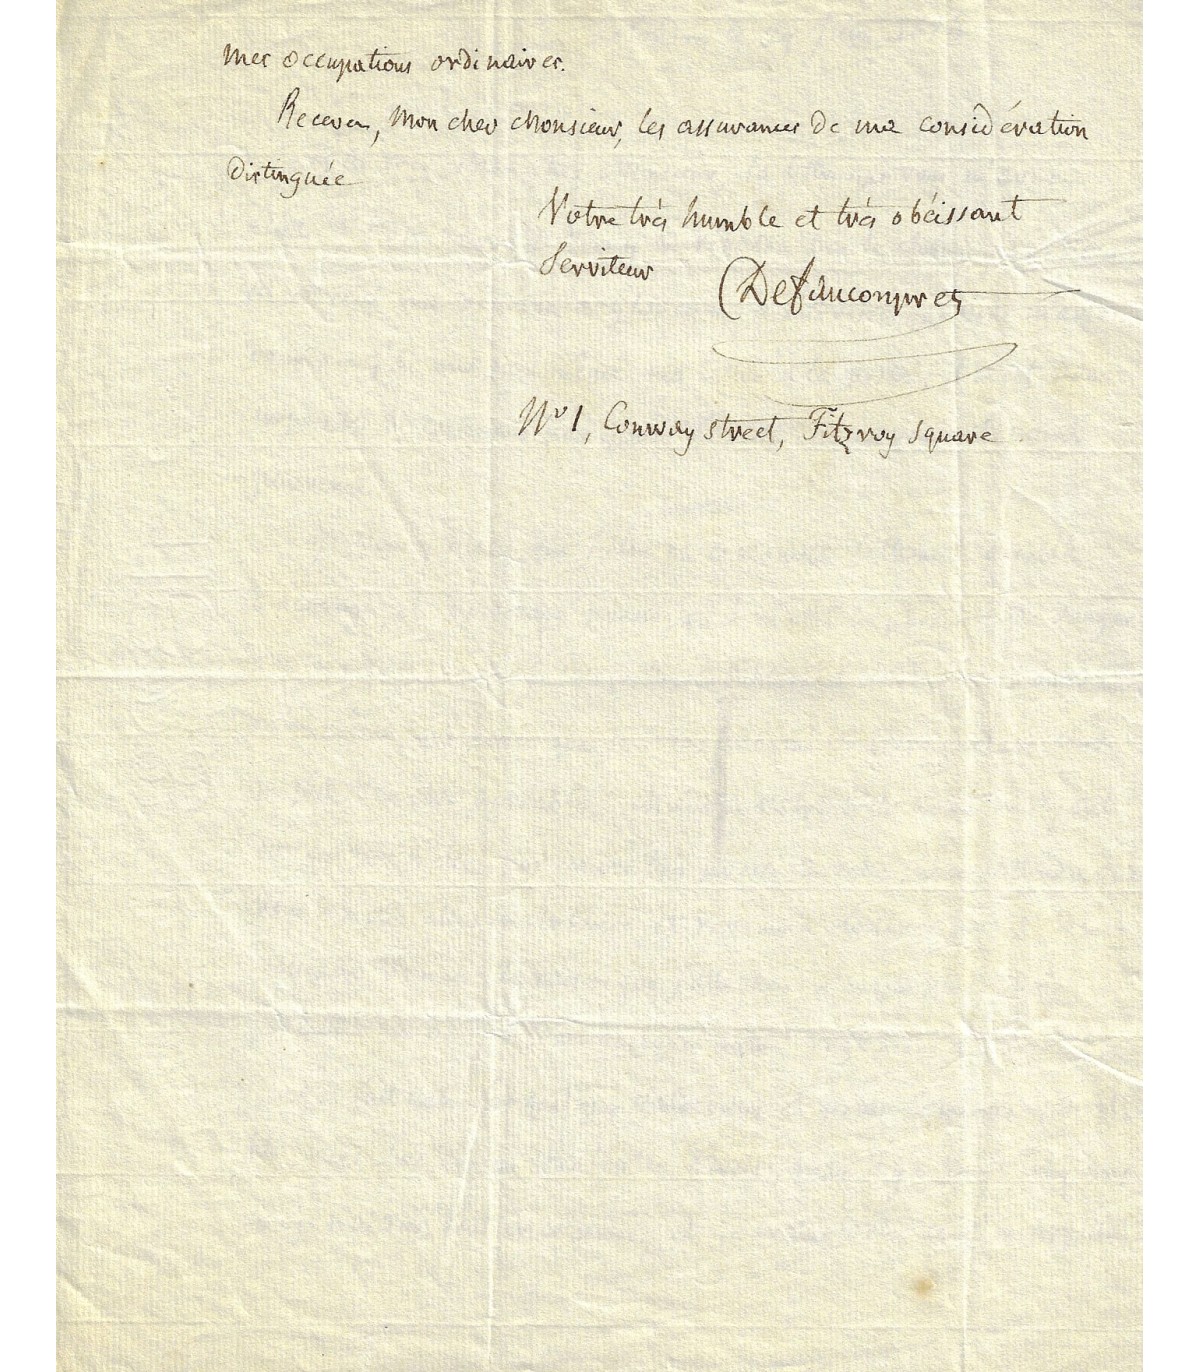 mes occupations ordinaires.
Recevez, mon cher monsieur, les assurances de ma considération
distinguée
Votre très humble et très obéissant
Serviteur Defauconpret
No 1, Conway street, Fitzroy square